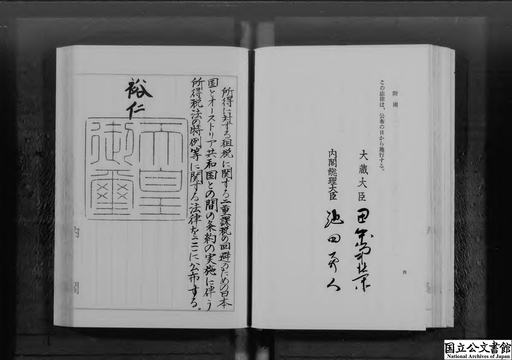 附則
この法律は、公布の日から施行する。
大蔵大臣 田中角栄
内閣総理大臣 池田勇人
所得に対する租税に関する二重課税の回避のための日本
国とオーストリア共和国との間の条約の実施に伴う
所得税法の特例等に関する法律をここに公布する。
裕仁
天皇
御璽
国立公文書館
National Archives of Japan